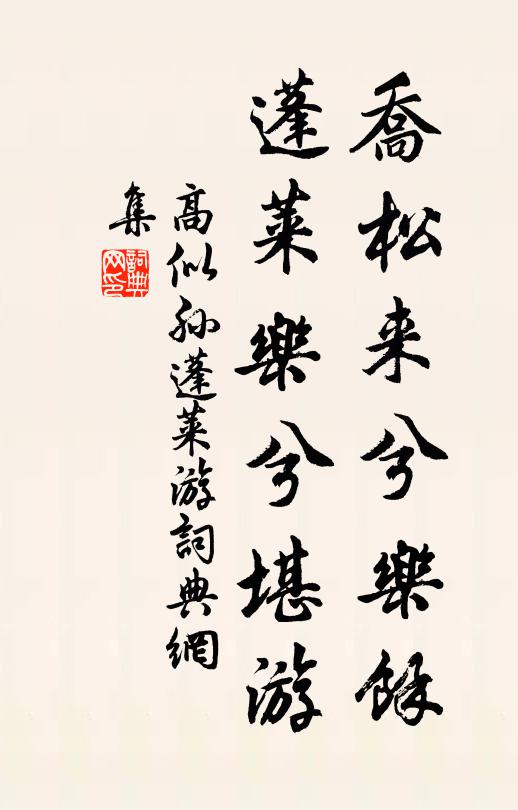 喬松来兮樂餘
蓬莱樂兮堪游
高似孙蓬莱游詞典網
集
詞典网印